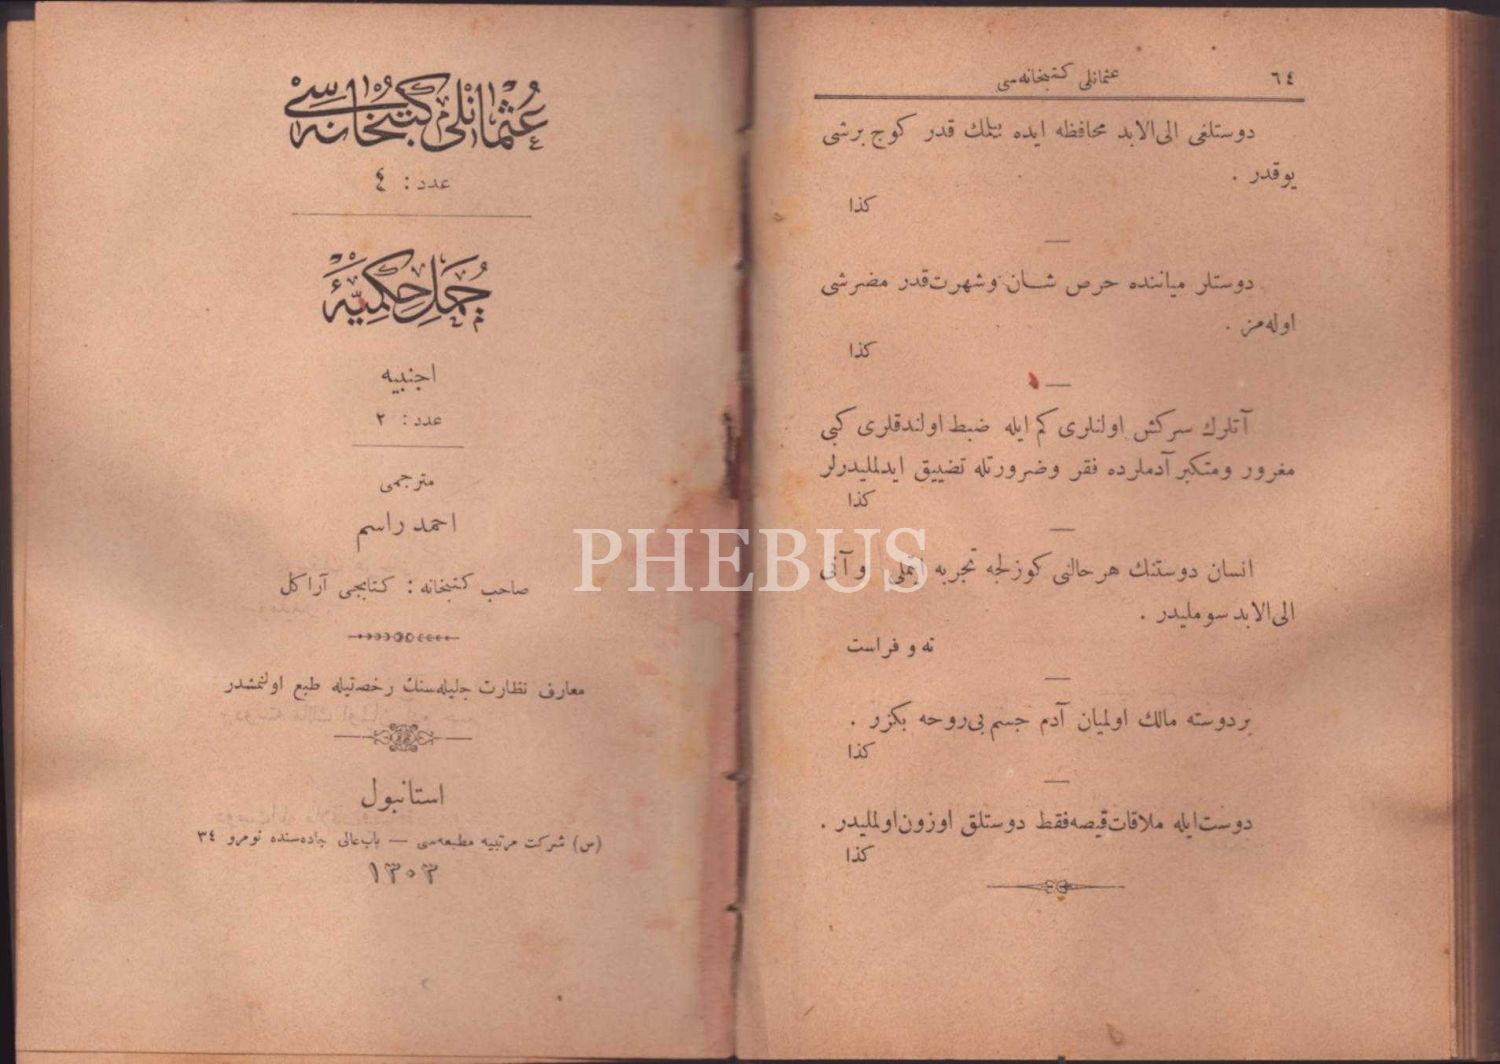 ٦٤
عثمانلی کتبخانه‌سی
دوستلغی الی‌الابد محافظه ایده بیلمك قدر کوج برشی
یوقدر .
کذا
دوستلر میاننده حرص شان وشهرت‌قدر مضرشی
اوله‌مز .
کذا
آتلرك سرکش اولنلری کم ایله ضبط اولندقلری کبی
مغرور ومتکبر آدملرده فقر وضرورتله تضییق ایدلملیدرلر
کذا
انسان دوستنك هر حالنی کوزلجه تجربه ایتملی و آنی
الی‌الابد سوملیدر .
ته و فراست
بردوسته مالك اولمیان آدم جسم بی‌روحه بکزر .
کذا
دوست‌ایله ملاقات‌قیصه‌فقط دوستلق اوزون‌اولملیدر .
کذا
عُثمانلی کُتبخانه‌سی
عدد : ٤
جُمَلِ حِکَمِیَّهٔ
اجنبیه
عدد : ٢
مترجمی
احمد راسم
صاحب کتبخانه : کتابجی آراکل
معارف نظارت جلیله‌سنك رخصتیله طبع اولنمشدر
استانبول
(س) شرکت مرتبیه مطبعه‌سی — باب‌عالی جاده‌سنده نومرو ٣٤
١٣٠٣
PHEBUS